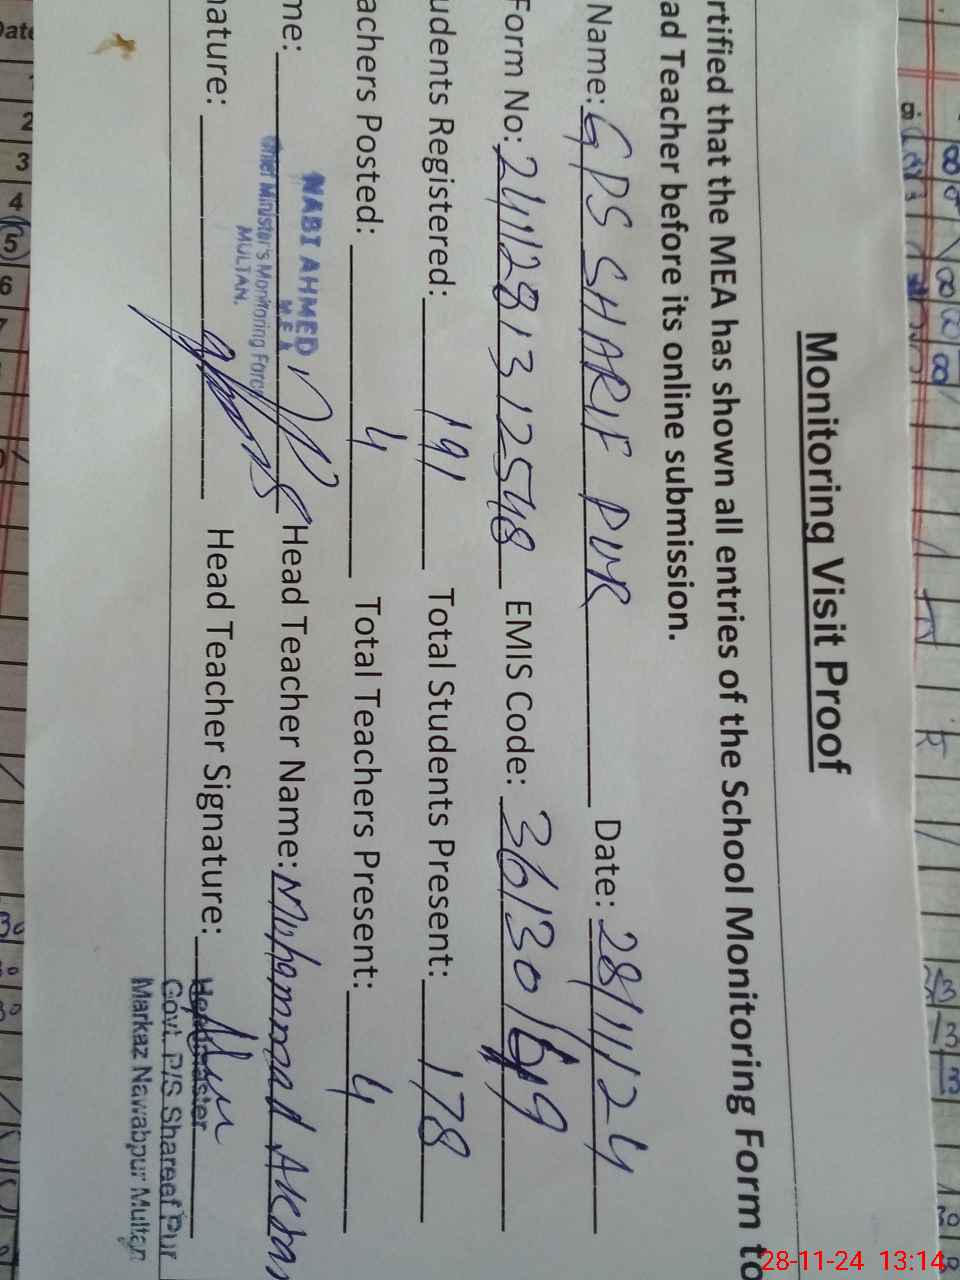 Monitoring Visit Proof
rtified that the MEA has shown all entries of the School Monitoring Form to
ad Teacher before its online submission.
Name: GPS SHARIF PUR Date: 28/11/24
Form No: 241128131 2548 EMIS Code: 36130
udents Registered: 191 Total Students Present: 178
achers Posted: 4 Total Teachers Present: 4
me: Head Teacher Name: Muhammad
NABI AHMED
MEA
Chief Minister's Monitoring Force
MULTAN.
nature: Head Teacher Signature:
Headmaster
Govt. P/S Shareef Pur
Markaz Nawabpur Multan
Date
2
3
4
5
6
28-11-24 13:14